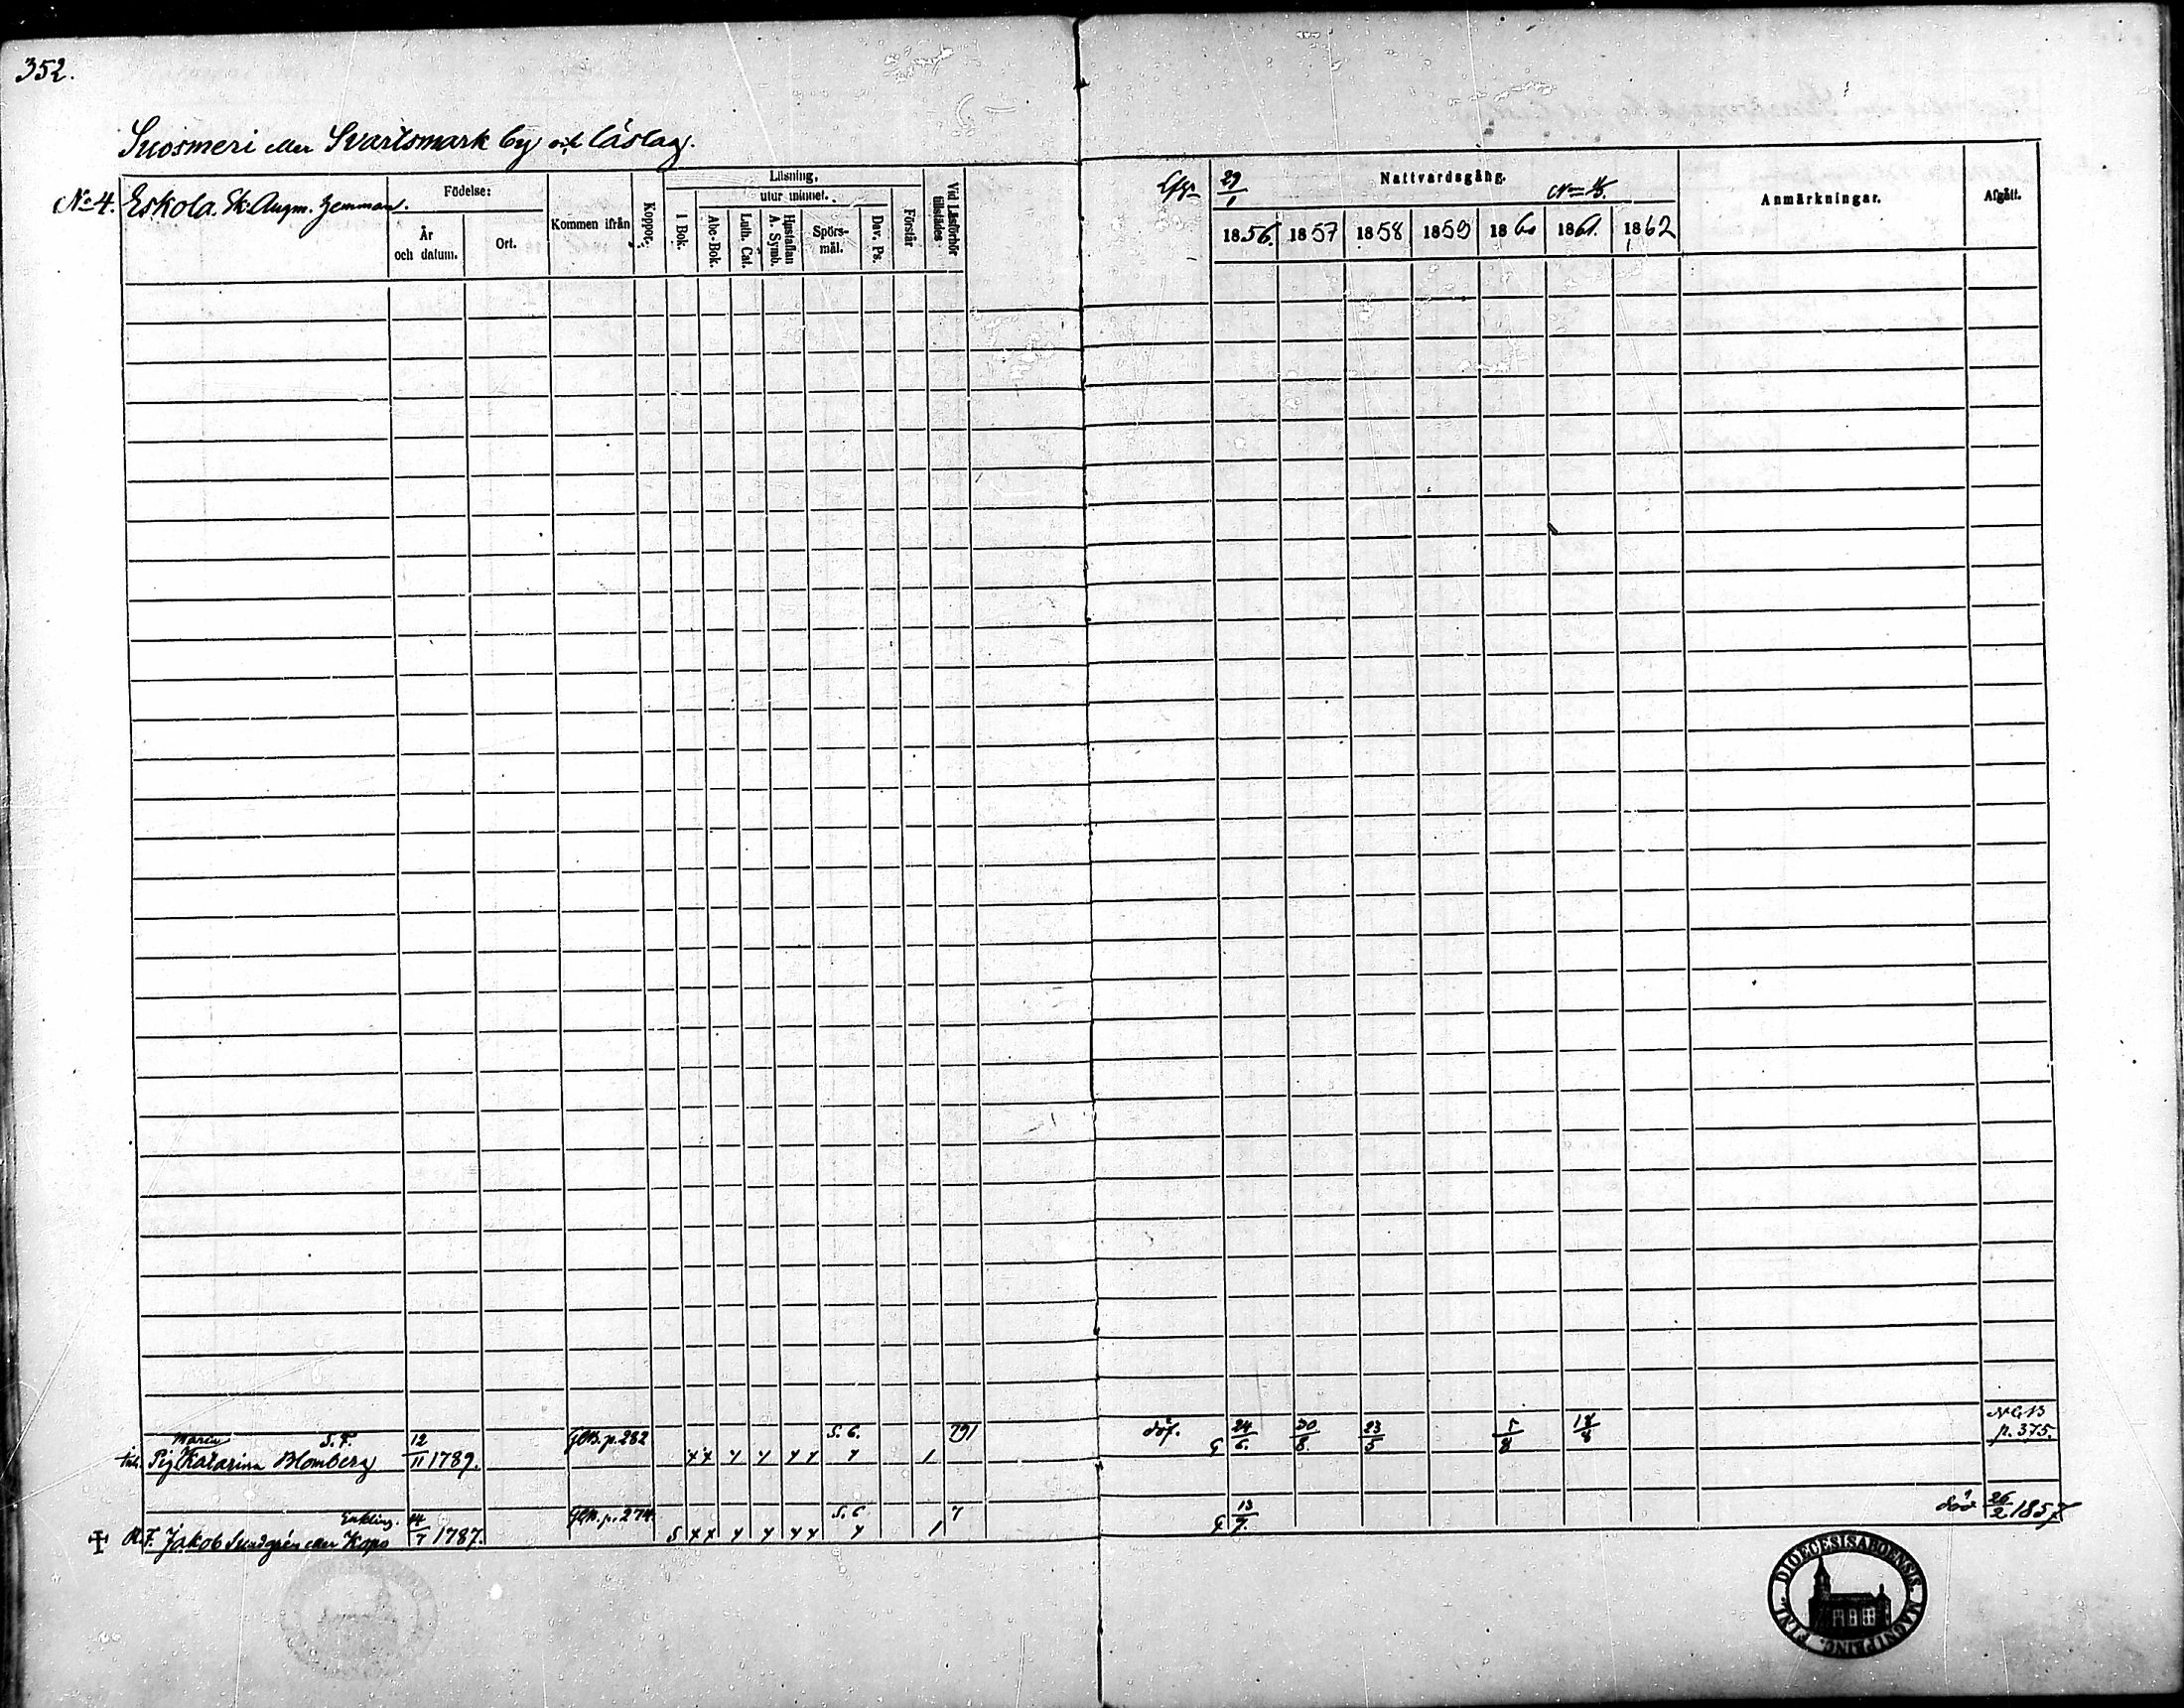 352.
Suosmeri eller Svartsmark by och läslag.
No 4. Eskola. Sk. Augm. hemman.
Födelse:
År och datum.
Ort.
Kommen ifrån
Koppor.
Läsning,
utur minnet.
I Bok.
Abc-Bok.
Luth. Cat.
Hustaflan A. Symb.
Spörsmål.
Dav. Ps.
Förstår
Vid Läsförhör tillstädes
29/1
Nattvardsgång.
1856. 1857 1858 1859 1860 1861. 1862
Anmärkningar.
Afgått.
Maria S. F. 12/11 1789. GKB. p. 282 S. 6. 791 döf. 24/6. 30/8. 23/5 5/8 NGB p. 375.
Pig. Katarina Blomberg
Enkling. 14/7 1787. GKB. p. 274 S. 6 7 G 13/7. död 26/2 1857
Jakob Sundgrén eller Kopo
DIOECESIS ABOENSIS. MAGNI PRINC. FINL.